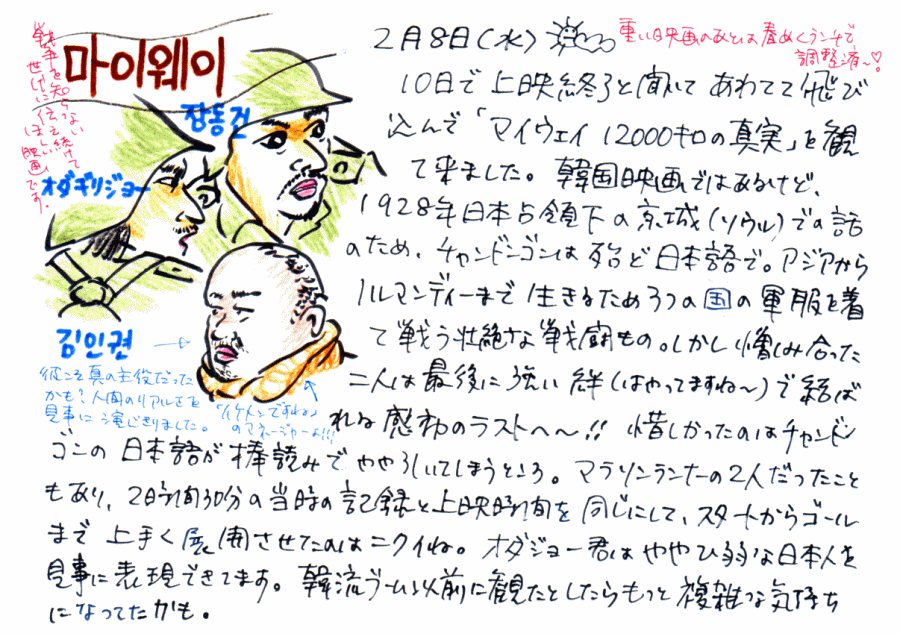 2月8日(水)
重い映画のあとは春めくランチで
調整済〜♡
戦争を知らない
世代に伝え続けて
ほしい
映画です。
마이웨이
장동건
オダギリジョー
김인권
彼こそ真の主役だった
かも?人間のリアルさを
見事に演じきりました。
「イケメンですね」
のマネージャーよ!!!
10日で上映終了と聞いてあわてて飛び
込んで「マイウェイ 12000キロの真実」を観
て来ました。韓国映画ではあるけど、
1928年日本占領下の京城(ソウル)での話
のため、チャンドンゴンは殆ど日本語で。アジアから
ノルマンディーまで生きるため3つの国の軍服を着
て戦う壮絶な戦闘もの。しかし憎しみ合った
二人は最後に強い絆(はやってますね〜)で結ば
れる感動のラストへ〜!! 惜しかったのはチャンドン
ゴンの日本語が棒読みでやや引いてしまうところ。マラソンランナーの2人だったこと
もあり、2時間30分の当時の記録と上映時間を同じにして、スタートからゴール
まで上手く展開させてたのはニクイね。オダジョー君はややひ弱な日本人を
見事に表現できてます。韓流ブーム以前に観たとしたらもっと複雑な気持ち
になってたかも。